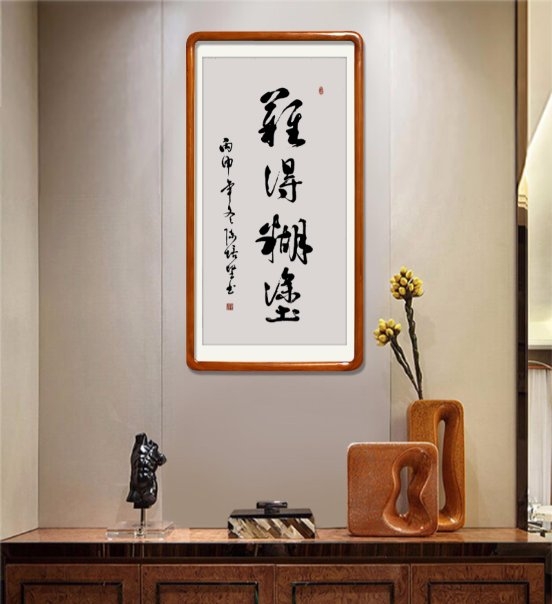 難得糊塗
丙申年冬